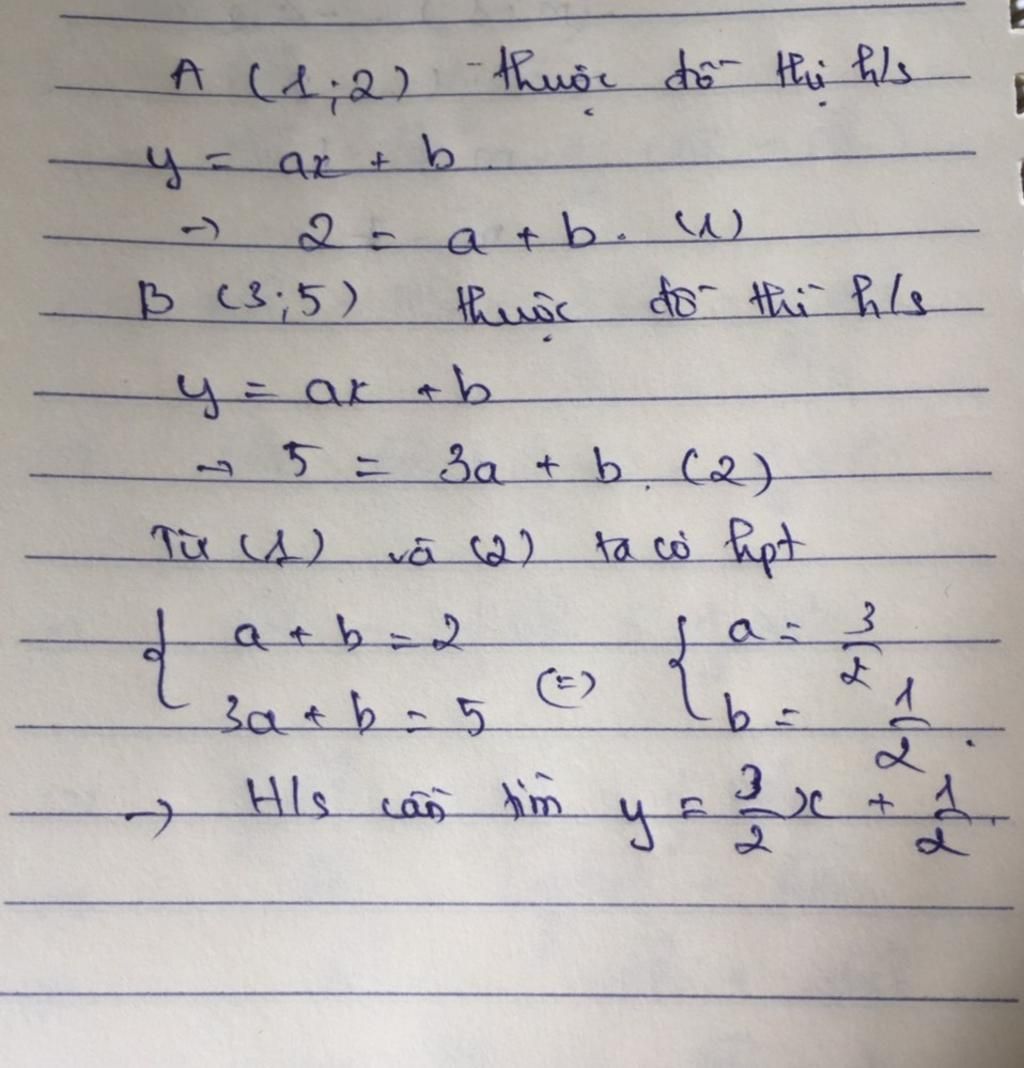 A (1;2) thuộc đồ thị h/s
y = ax + b
→ 2 = a + b. (1)
B (3;5) thuộc đồ thị h/s
y = ax + b
→ 5 = 3a + b. (2)
Từ (1) và (2) ta có hpt
{ a + b = 2 (=) { a = 3/2
3a + b = 5 b = 1/2.
→ H/s cần tìm y = 3/2 x + 1/2.